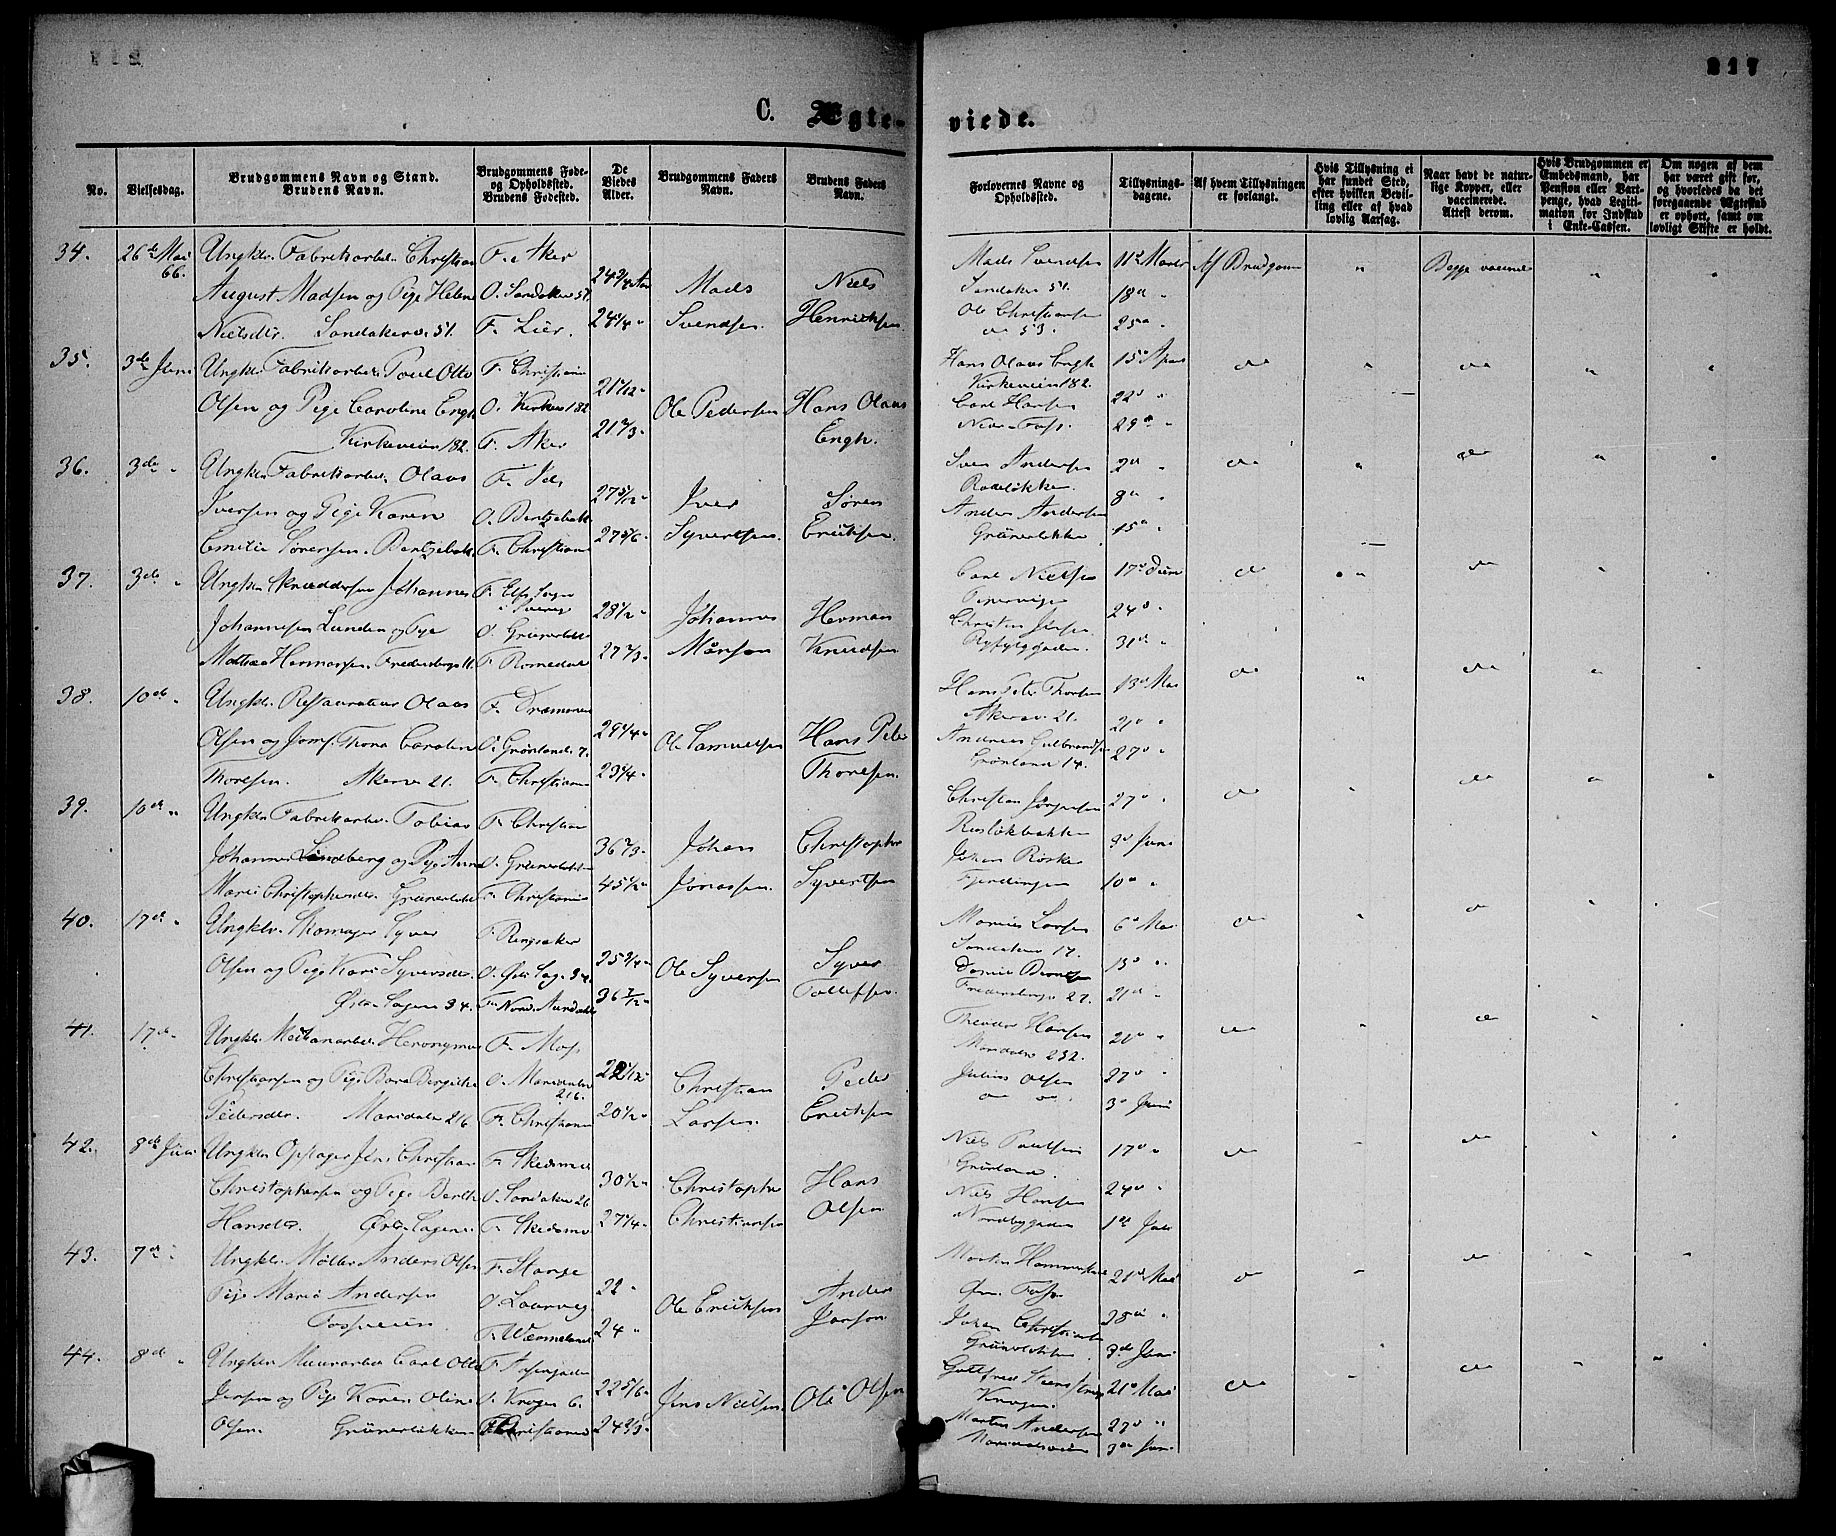 217
C. Ægte-
viede.
No.
Vielsesdag.
Brudgommens Navn og Stand.
Brudens Navn.
Brudgommens Føde-
og Opholdssted.
Brudens Fødested.
De
Viedes
Alder.
Brudgommens Faders
Navn.
Brudens Faders
Navn.
Forlovernes Navne og
Opholdssted.
Tillysnings-
dagene.
Af hvem Tillysningen
er forlangt.
Hvis Tillysning ei
har fundet Sted,
efter hvilken Bevil-
ling eller af hvad
lovlig Aarsag.
Naar havt de natur-
lige Kopper, eller
vaccinerede.
Attest derom.
Hvis Brudgommen er
Embedsmand, har
Pension eller Vart-
penge, hvad Legiti-
mation for Indskud
i Enke-Cassen.
Om nogen af dem
har været gift før,
og hvorledes da det
foregaaende Ægteskab
er ophørt, samt om
lovligt Skifte er holdt.
34. 26de Mai 66.
Ungkl. Fabrikarbei. Christian
August Madsen og Pige Helene
Nielsdtr. Sandakerv. 51.
F. Aker
O. Sandaker 51.
F. Lier.
24 3/4 Aar
24 1/4 "
Mads
Svendsen.
Niels
Henriksen
Mads Svendsen
Sandaker 51.
Ole Christiansen
do 53.
11te Marts
18de "
25de "
Af Brudgom
Begge vaccined
35. 3de Juni
Ungkl. Fabrikarbei. Poul Otto
Olsen og Pige Caroline Engh
Kirkeveien 182.
F. Christiania
O. Kirkev 182
F. Aker
21 2/3 "
Ole Pedersen
Hans Olaus
Engh.
Hans Olaus Engh
Kirkeveien 182.
Carl Hansen
15de April
22de "
29de "
36. 3de "
Ungkl. Fabrikarbei. Olaus
Iversen og Pige Karen
Emilie Sørensen. Bentsebak.
O. Bentsebak.
F. Christiania
27 5/12 "
27 5/6 "
Iver
Syvertsen.
Søren
Eriksen.
Sven Andersen
Rodeløkken.
Anders Andersen
Grünerløkken
2den "
8de "
15de "
37. 3de "
Ungkl. Skrædder Johannes
Johannesen Lunden og Pige
Mathea Hermansen. Fredensborgv 11.
O. Grünerløkk
F. Romedal
28 1/2 "
27 2/3 "
Johannes
Månson
Herman
Knudsen
Carl Nielsen
Pipervigen
Christen Jensen.
Ryfylkgaden.
17de
24de "
31te "
38. 10de "
Ungkl. Restauratør Olaus
Olsen og Jomf. Thora Caroline
Thoresen. Akersv 21.
F. Drammen
O. Grønland 7.
F. Christiania
29 1/4 "
23 1/4 "
Ole Samuelsen
Hans Peter
Thoresen.
Hans Peter Thoresen
Akersv. 21.
Andreas Gulbrandsen
Grønland 14.
13de Mai
21de "
27de "
39. 10de "
Ungkl. Fabrikarbei. Tobias
Johannes Lindberg og Pige Anne
Marie Christophersdtr. Grünerløkk
F. Christiania
O. Grünerløkken
F. Christiania
36 2/3 "
45 1/2 "
Johan
Jonassen.
Christopher
Syvertsen
Christian Jørgensen
Rusløkbakken
Johan Røske
Fjerdingen
27de "
3de Juni
10de "
40. 17de "
Ungkl. Skomager Syver
Olsen og Pige Kari Syversdtr.
Østre Sagene 34.
F. Ringsaker
O. Østre Sag. 34.
F. Nord. Aurdal
25 3/4 "
36 7/12 "
Ole Syversen
Syver
Tollefsen.
Marius Larsen
Sandaker 17.
Fredensborgv 27.
6te Mai
13de "
21de "
41. 17de "
Ungkl. Mekanarbei. Hieronymus
Christiansen og Pige Bora Bergithe
Pedersdtr. Maridalsv 216
F. Moss
O. Maridalsv 216.
F. Christiania
22 1/12 "
20 1/2 "
Christian
Larsen.
Peder
Eriksen
Theodor Hansen
Maridalsv 232.
Julius Olsen
do do.
21de "
27de "
3de Juni
42. 8de Juli
Ungkl. Opsager Jens Christian
Christophersen og Pige Berthe
Hansdtr. Østre Sagene.
F. Skedsmo
O. Sandaker 26
F. Skedsmo
30 1/2 "
27 1/4 "
Christopher
Christiansen
Hans
Olsen
Niels Paulsen
Grønland
Niels Hansen
Nordbygaden
17de "
24de "
1ste Juli
43. 7de "
Ungkl. Møller Anders Olsen
Pige Maria Andersen
Fossveien.
F. Stange
O. Laurvig
F. Wermeland
22 "
24 "
Ole Eriksen
Anders
Janson
Øvre Foss.
Johan Christiansen
Grünerløkken
21de Mai
28de "
3de Juni
44. 8de "
Ungkl. Murarbei. Carl Otto
Jensen og Pige Karen Oline
Olsen. Grünerløkken.
O. Krogen 6.
F. Christiania
22 5/6 "
24 2/3 "
Jens Nielsen.
Ole Olsen
Krogen.
Martin Andersen
Maridalsveien
21de Mai
27de "
3de Juni